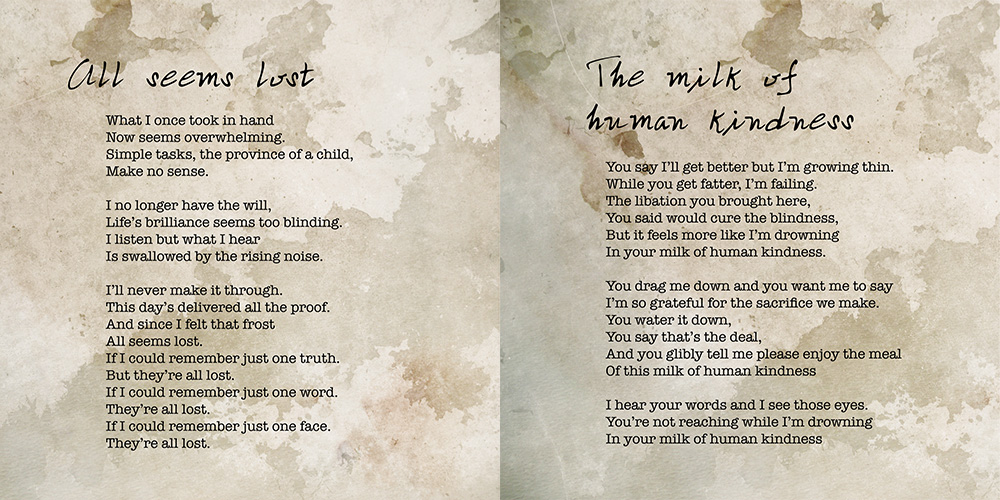 All seems lost
What I once took in hand
Now seems overwhelming.
Simple tasks, the province of a child,
Make no sense.
I no longer have the will,
Life's brilliance seems too blinding.
I listen but what I hear
Is swallowed by the rising noise.
I'll never make it through.
This day's delivered all the proof.
And since I felt that frost
All seems lost.
If I could remember just one truth.
But they're all lost.
If I could remember just one word.
They're all lost.
If I could remember just one face.
They're all lost.
The milk of
human kindness
You say I'll get better but I'm growing thin.
While you get fatter, I'm failing.
The libation you brought here,
You said would cure the blindness,
But it feels more like I'm drowning
In your milk of human kindness.
You drag me down and you want me to say
I'm so grateful for the sacrifice we make.
You water it down,
You say that's the deal,
And you glibly tell me please enjoy the meal
Of this milk of human kindness
I hear your words and I see those eyes.
You're not reaching while I'm drowning
In your milk of human kindness